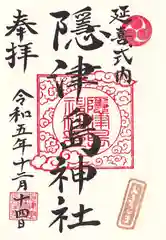 延喜式内
隠津島神社
奉拝
令和五年十二月十四日